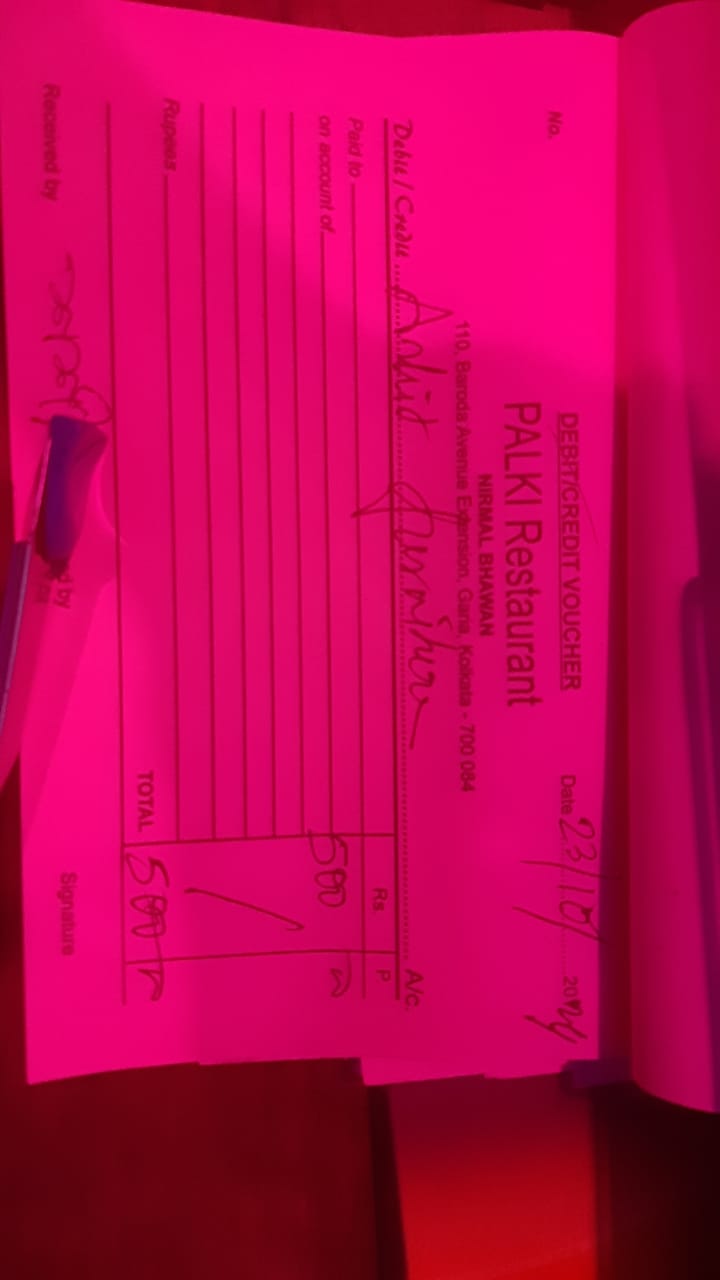 DEBIT/CREDIT VOUCHER
No.
Date 23/10/ 2024
PALKI Restaurant
NIRMAL BHAWAN
110, Baroda Avenue Extension, Garia, Kolkata - 700 084
Debit / Credit A/c.
Paid to Rs. P
on account of 500
Rupees
TOTAL 500
Received by
d by
Signature